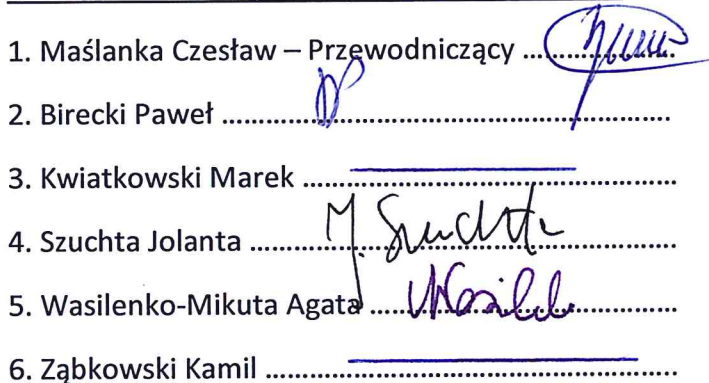 1. Maślanka Czesław – Przewodniczący ....................
2. Birecki Paweł ............................................................
3. Kwiatkowski Marek ..................................................
4. Szuchta Jolanta .........................................................
5. Wasilenko-Mikuta Agata .........................................
6. Ząbkowski Kamil .......................................................